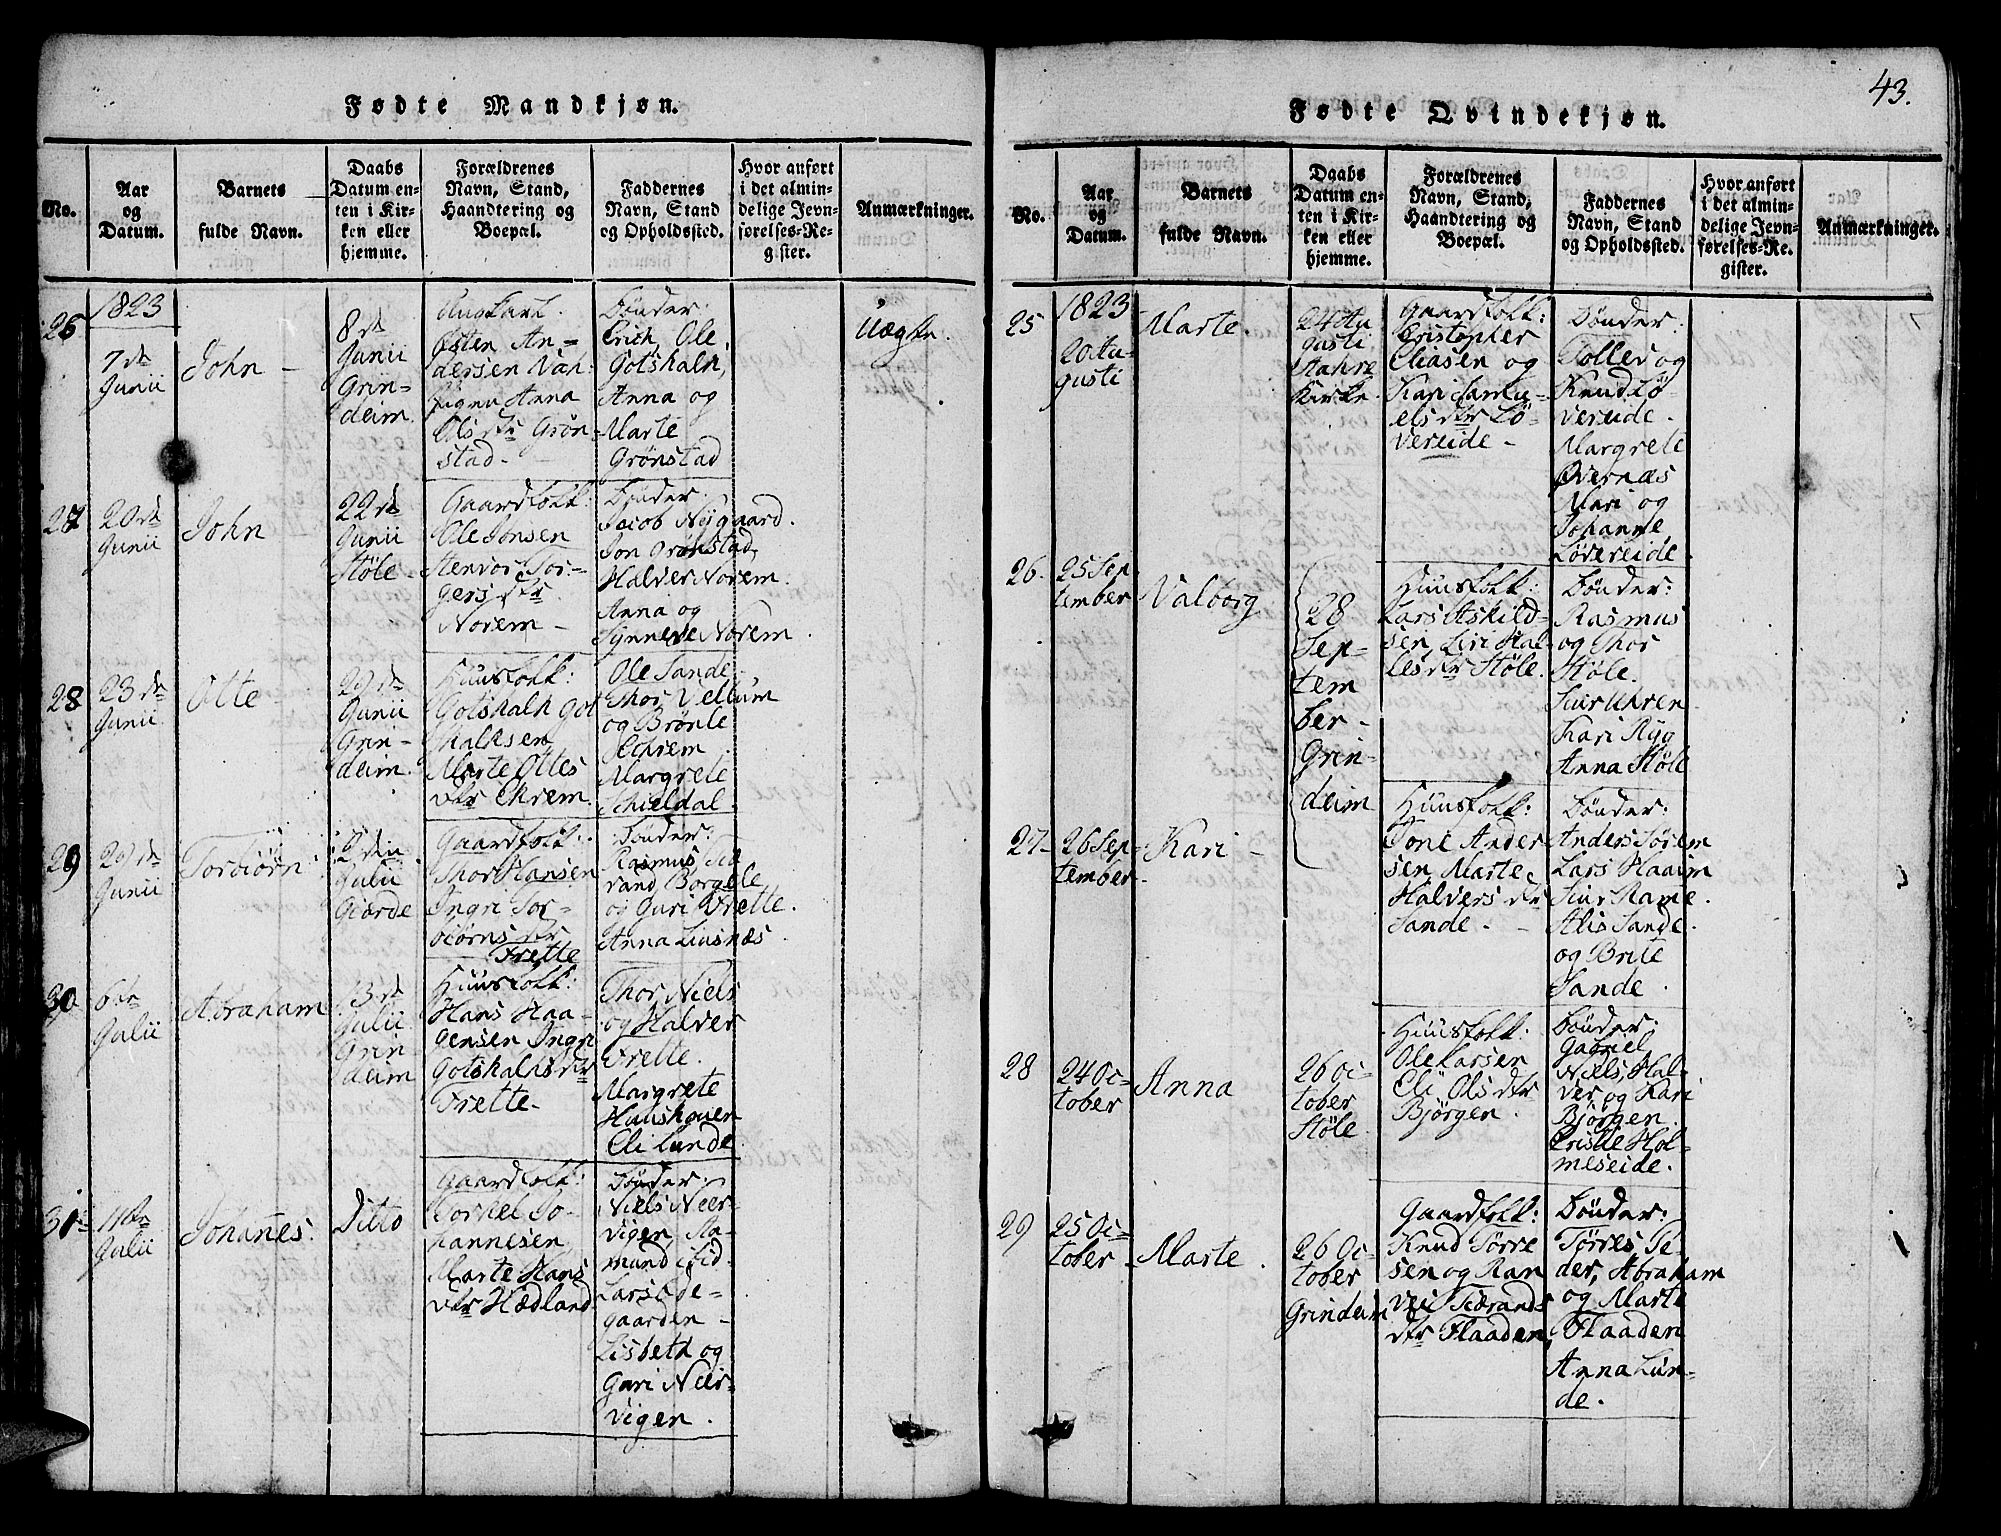 43.
Fødte Mandkjøn.
No.
Aar
og
Datum.
Barnets
fulde Navn.
Daabs
Datum en-
ten i Kir-
ken eller
hjemme.
Forældrenes
Navn, Stand,
Haandtering og
Boepæl.
Faddernes
Navn, Stand
og Opholdssted.
Hvor anført
i det almin-
delige Jevn-
førelses-Re-
gister.
Anmærkninger.
26
1823
7de
Junii
John -
8de
Junii
Grin-
deim.
Østen An-
dersen
Anna
Ols dtr Grøn-
stad -
Bønder:
Erich, Ole,
Gotshalk,
Anna og
Marte
Grønstad
Uægte.
27
20de
Junii
John
22de
Junii
Støle -
Gaardfolk:
Ole Jonsen
Stenvor Tor-
gers dtr
Norem -
Bønder:
Jacob Nygaard.
Jon Grønstad,
Halver Norem.
Anna og
Synneve Norem.
28
23de
Junii
Otte
29de
Junii
Grin-
deim.
Huusfolk:
Gotshalk Got
shalksen
Marte Ottes
dtr Ekrem.
Ole Sande.
Thor Vellum
og Brønle
Echrem.
Margrete
Schieldal.
29
29de
Junii
Torbiørn
2den
Julii
Giærde
Gaardfolk:
Thor Hansen
Ingri Tor-
biørns dtr
Frette
Bønder:
Rasmus,
rand, Borgele
og Guri Frette.
Anna Liusnæs.
30
6te
Julii
Abraham
13de
Julii
Grin
deim
Huusfolk:
Hans Haa-
gensen Ingri
Gotshalks dtr
Frette -
Thor, Niels
og Halver
Frette.
Margrete
Hauskouen
Eli Lunde
31
11te
Julii
Johannes.
Ditto
Gaardfolk:
Torkel Jo-
hannesen,
Marte Hans
dtr Hædland
Bønder:
Niels Neer-
vigen,
mund Eid.
Lars Ide-
gaarden -
Lisbeth og
Guri Neer-
vigen.
Fødte Qvindekjøn.
No.
Aar
og
Datum.
Barnets
fulde Navn.
Daabs
Datum en-
ten i Kir-
ken eller
hjemme.
Forældrenes
Navn, Stand,
Haandtering og
Boepæl.
Faddernes
Navn, Stand
og Opholdssted.
Hvor anført
i det almin-
delige Jevn-
førelses-Re-
gister.
Anmærkninger.
25
1823
20 Au-
gusti
Marte.
24 Au
gusti
Stahre
Kirke.
Gaardfolk:
Cristopher
Eliasen og
Kari Samu-
els dtr Lø-
vereide -
Bønder:
Tollev og
Knud Lø-
vereide.
Margrete
Øvernæs
Mari og
Johanne
Løvereide.
26.
25 Sep
tember
Valborg
28
Sep-
tem
ber -
Grin-
deim
Huusfolk:
Lars Askild-
sen, Siri Hal-
les dtr Støle.
Bønder:
Rasmus
og Thor
Støle.
Siur Uhren
Kari Ryg
Anna Støle
27-
26 Sep-
tember.
Kari -
Huusfolk:
Tone Ander
sen, Marte
Halvers dtr
Sande. -
Bønder:
Anders Sørem
Lars Haaim
Siur Rame.
Alis Sande.
og Brite
Sande.
28
24 Oc-
tober
Anna
26 Oc-
tober
Støle
Huusfolk:
Ole Larsen
Eli Ols dtr
Bjørgen.
Bønder:
Gabriel
Niels, Hal-
ver og Kari
Bjørgen.
Cristie Hol-
meseide.
29
25 Oc-
tober
Marte.
26 Oc-
tober
Grindeim
Gaardfolk:
Knud Tørre
sen og Ran
vei Tiærands
dtr Flaaden,
Bønder:
Tørres, Pe-
der, Abraham
og Marte
Flaaden
Anna Lun-
de.